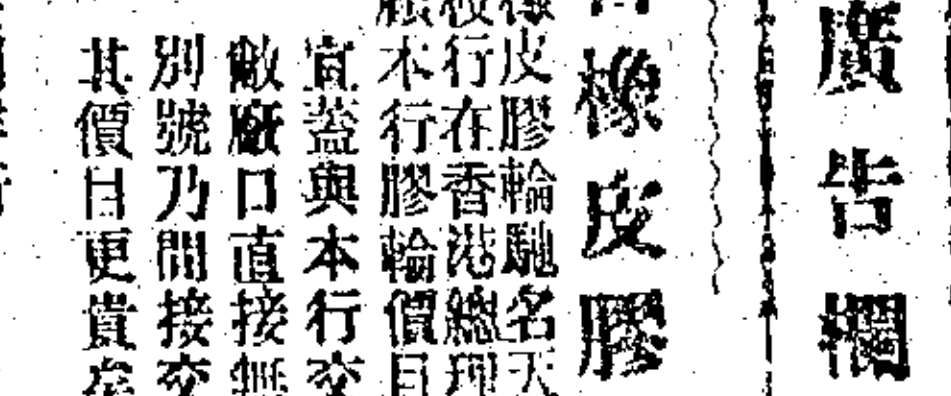 廣告欄
橡皮膠
皮膠輪馳名天
行在香港總理
本行膠輪價目
宜蓋與本行交
敝廠口直接無
別號乃間接交
其價目更貴矣